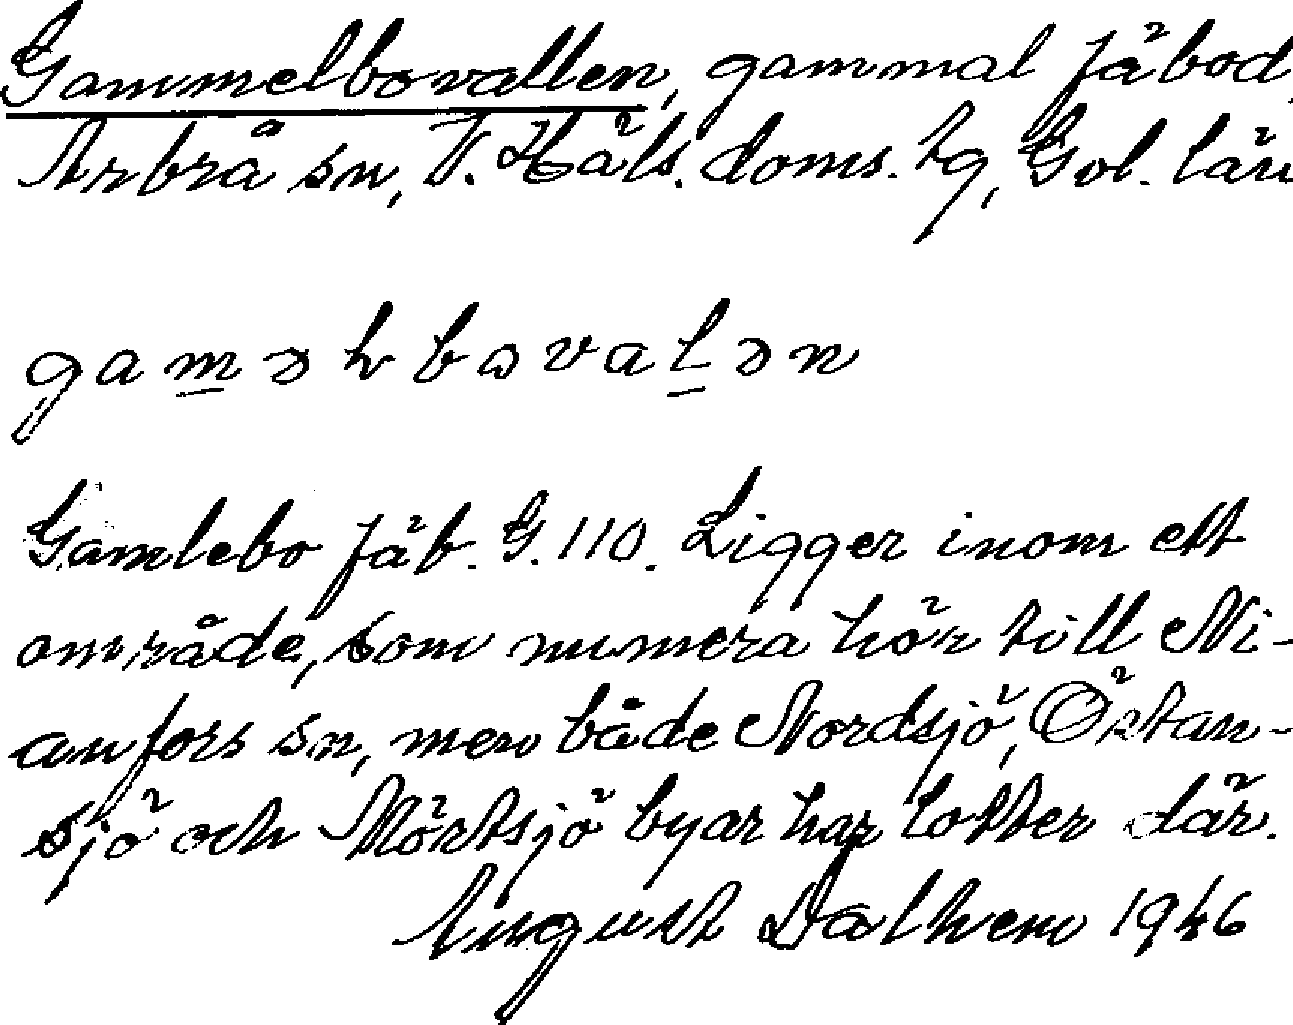 Gammelbovallen, gammal fäbod,
Arbrå sn, V. Häls. doms. tg, Gbl. län
Gamlebo fäb. G. 110. Ligger inom ett
område, som numera hör till Ni-
anfors sn, men både Nordsjö, Östan-
sjö och Mörtsjö byar har lotter där.
August Dalhem 1946